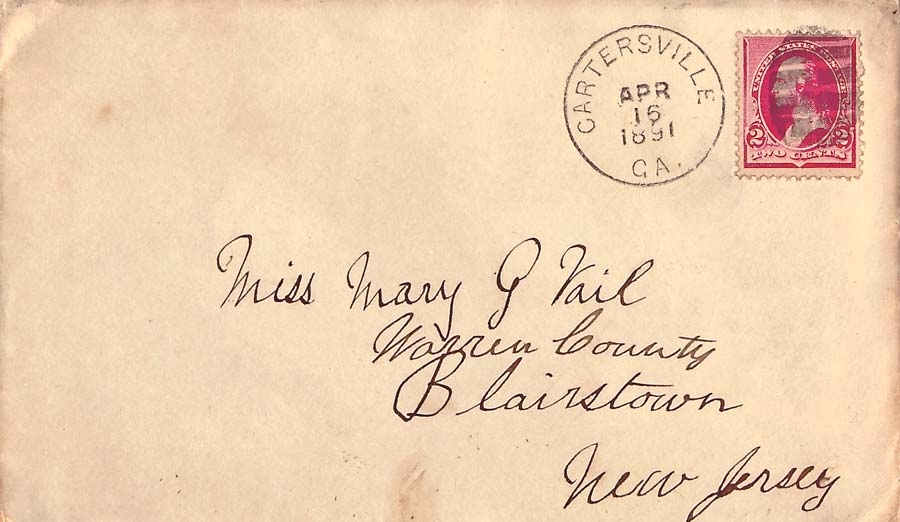 CARTERSVILLE
APR
16
1891
GA.
UNITED STATES POSTAGE
2 2
TWO CENTS
Miss Mary G Vail
Warren County
Blairstown
New Jersey